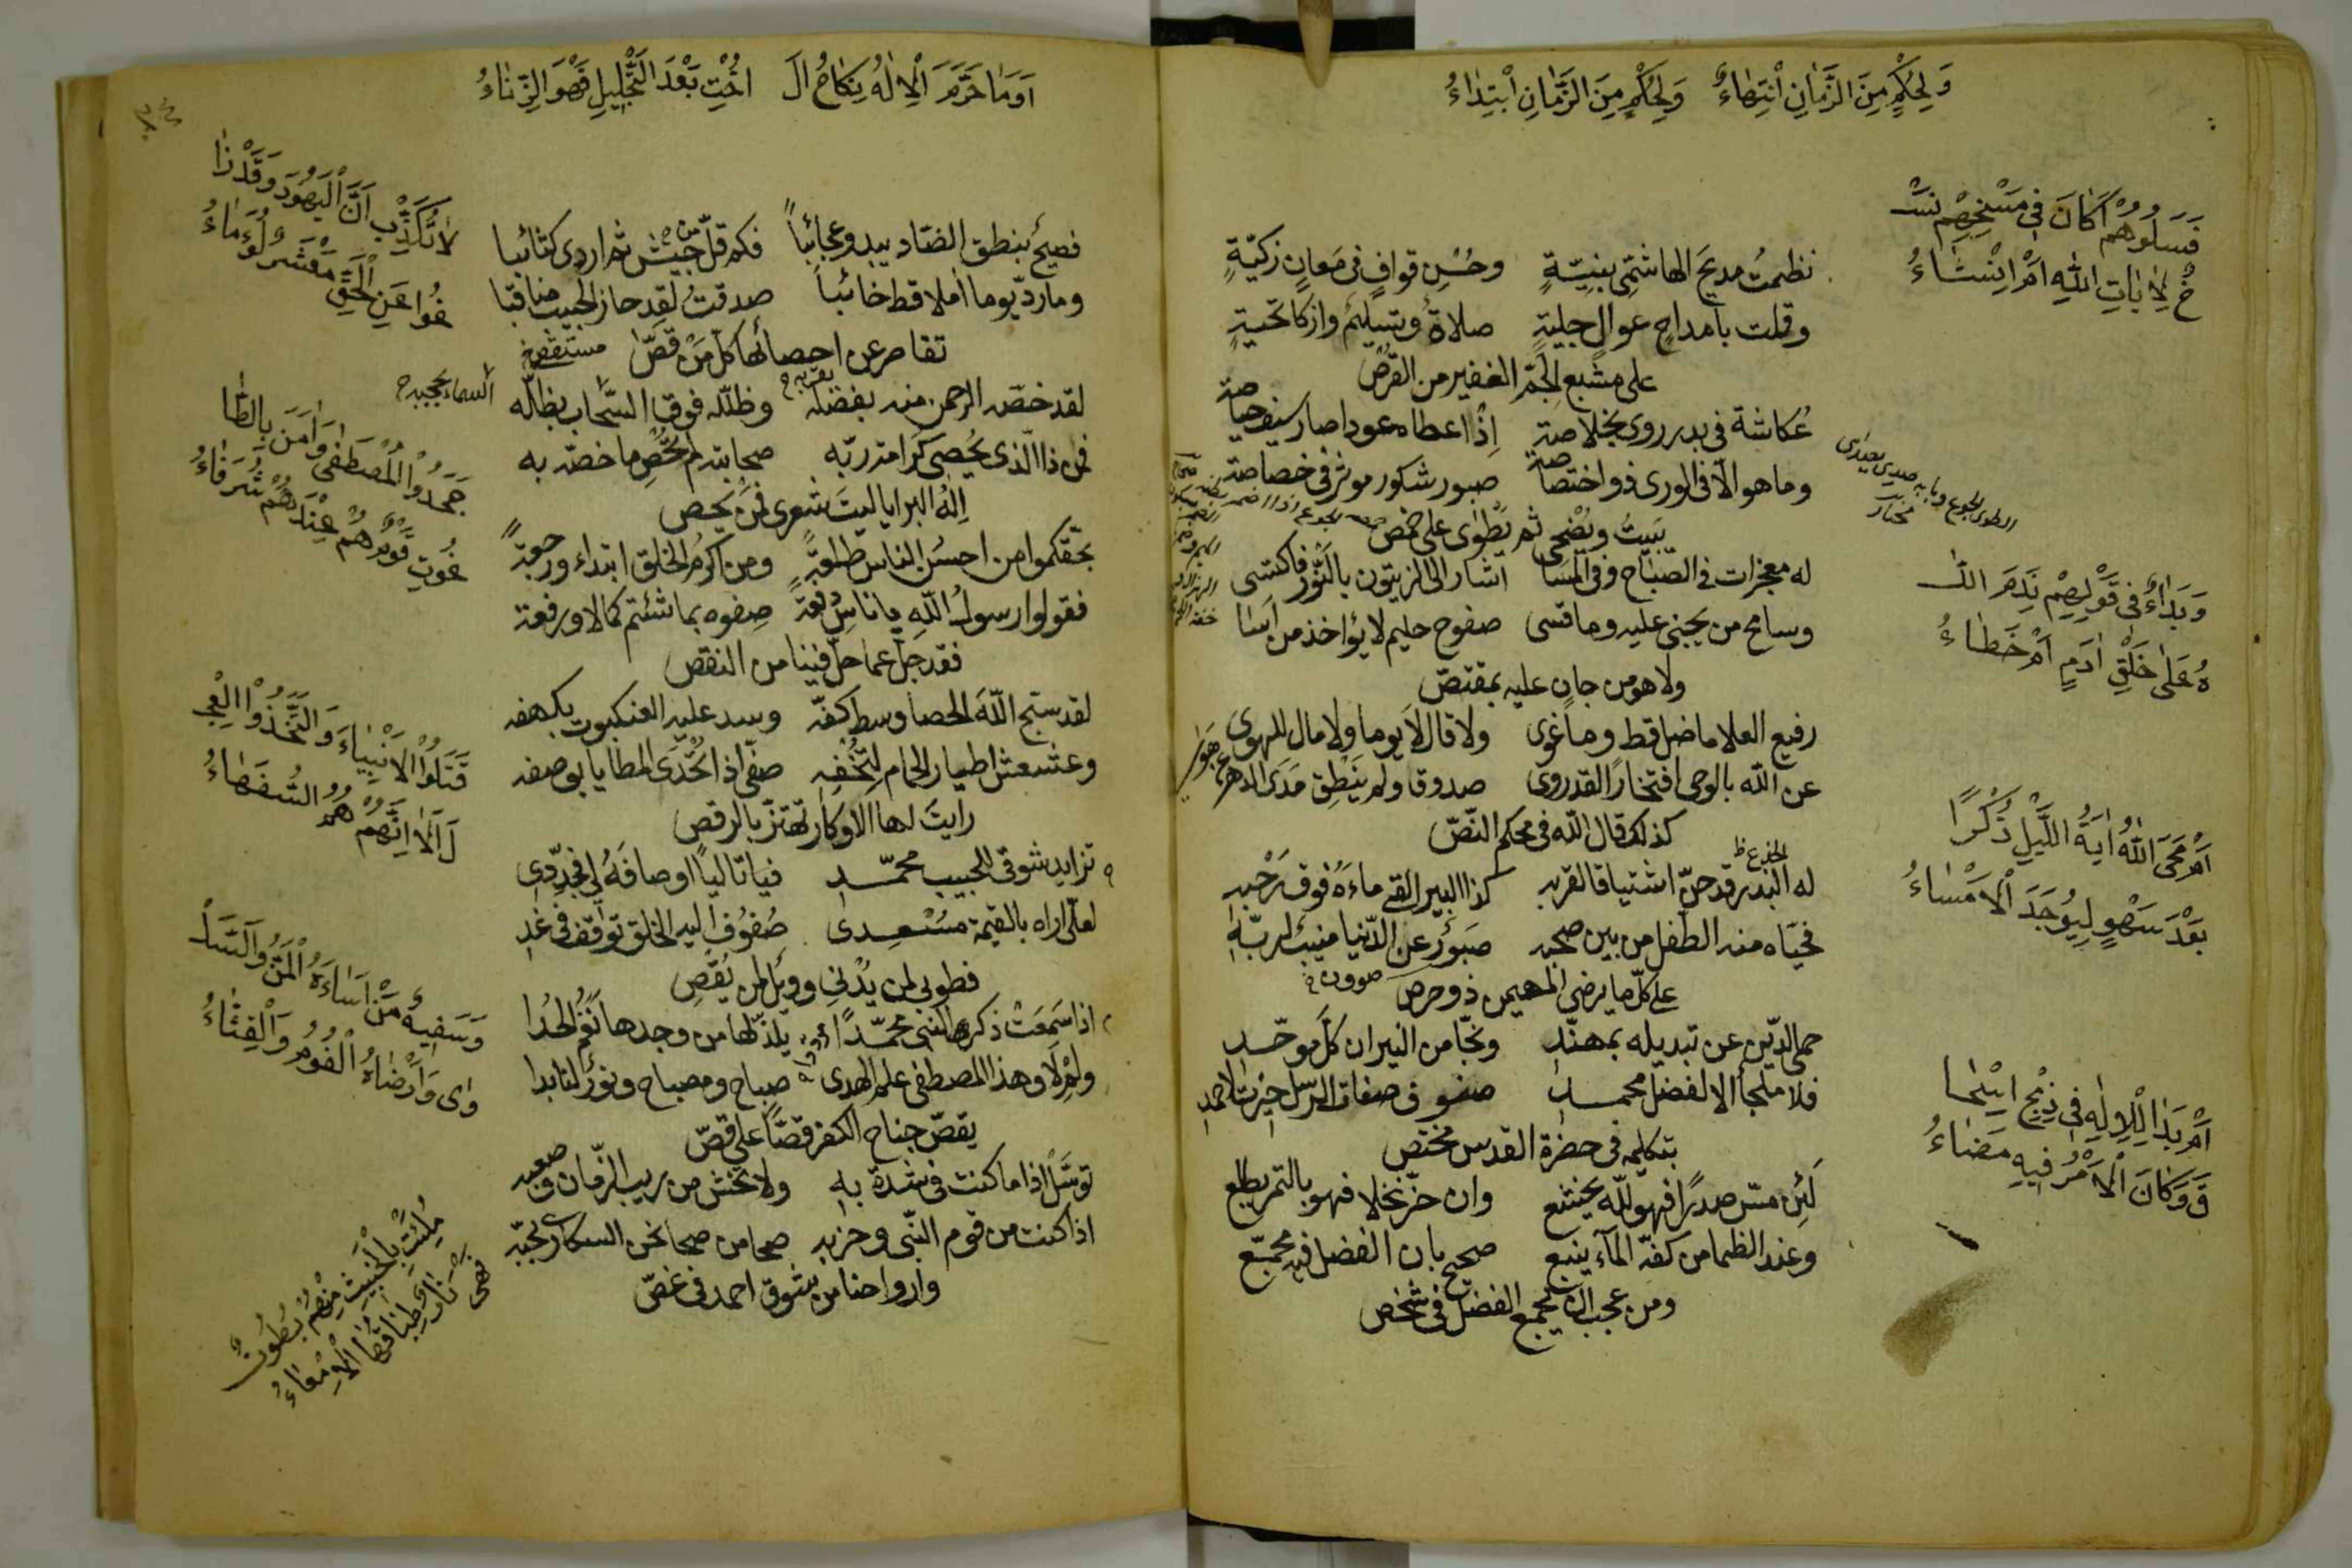 وَلِحُكْمٍ مِنَ الزَّمَانِ انْتِهَاءٌ وَلِحُكْمٍ مِنَ الزَّمَانِ ابْتِدَاءُ
فَسَلُوهُمْ أَكَانَ فِى مَسْخِهِمْ نَسْـ
ـخٌ لِاٰيَاتِ اللهِ اَمْ اِنْشَاءُ
نظمتُ مديحَ الهاشمِّى بنيّةٍ وحُسْنِ قوافٍ فى مَعانٍ زكيّةٍ
وقلت بأمداحٍ عوالٍ جليةٍ صلاةٌ وتسليمٌ وازكا تحيةٍ
على مشبع الجمّ الغفير من القرصْ
عُكاشة فى بدر روى بخلاصةٍ إذْ اعطاه عودا صار سيف حياصة
وما هو الّا فى الورى ذو اختصاصة صبور شكور موثر فى خصاصة
يبيتُ ويُضحى ثم يُطْوى على خمص
له معجزات فى الصّباح وفى المسا اشار الى الزيتون بالثّمر فاكتسى
وسامح من يجنى عليه وما قسى صفوح حليم لا يؤاخذ من أسَا
ولا هو من جانٍ عليه بمقتصّ
وَبَدَاءٌ فى قَوْلِهِمْ نَدِمَ اللّٰـ
ـهُ عَلٰى خَلْقِ اٰدَمٍ اَمْ خَطَاءُ
رفيع العلا ما ضل قط وما غوى ولا قال لا يوما ولا مال للهوى
عن الله بالوحى افتخارًا لقد روى صدوقا ولم يَنْطِق مَدَى الدهر عن هَوى
كذلك قال الله فى محكم النّصّ
اَمْ مَحَى اللهُ اٰيَةَ اللَّيْلِ ذُكْرًا
بَعْدَ سَهْوٍ لِيُوجَدَ الْاِمْسَاءُ
له البدر قد حنّ اشتياقا لقربه كذا البير القى ماءَهُ فوق رَحْبِه
فحيّاه منه الطفل من بين صحبه صَبَوْرٌ عن الدّنيا منيبٌ لربّه
على كلّ ما يرضى المهيمن ذو حرص
حمى الدّين عن تبديله بمهنّد ونجّا من النيران كلَّ موحّد
فلا ملجأ الا لفضل محمد صفوف صفات الرسل حيزت لاحمد
بتكليمه فى حضرة القدس مختص
اَمْ بَدَا لِلْاِلٰهِ فى ذِبْحِ اِسْحٰـ
ـقَ وَكَانَ الْاَمْرُ فِيهِ مَضَاءُ
لَئِن مسّ صدرًا فهو لله يخشع وان حزّ نخلا فهو بالتمر يطلع
وعند الظما من كفّه الماء ينبع صحيح بان الفضل فيه مجمّع
ومن عجب ان يجمع الفضل فى شخص
اَوَمَا حَرَّمَ الْاِلٰهُ نِكَاحُ الْـ اُخْتِ بَعْدَ التَّحْلِيلِ فَهْوَ الزِّنَاءُ
لَاتُكَذِّبْ اَنَّ الْيَهُودَ وَقَدْ زَا
غُوا عَنِ الْحَقِّ مَعْشَرٌ لُؤَمَاءُ
فصيحٌ بنطق الضاد يبدو عجائباً فكم قلّ من جيش ثم اردى كتائبا
وما ردّ يوما املا قط خائباً صدقتُ لقد حاز الحبيب مناقبا
تقاصر عن احصائها كل من قصّ
لقد خصّه الرحمن منه بفضله وظلّله فوق السَّحاب بظلّه
فمن ذا الّذى يُحصى كرامة ربّه صحابته لم تُحصِ ما خصّه به
اِلهُ البرايا ليتَ شعرى فمن يحص
جَحَدُوا الْمُصْطَفٰى وَاٰمَنَ بِالطَّا
غُوتِ قَوْمٌ هُمْ عِنْدَهُمْ شُرَفَاءُ
بحقّكموا من احسنُ الناس طلعةً ومن اكرمُ الخلق ابتداء ورجعةً
فقولوا رسولُ اللهِ يا ناسُ صِفوه بما شئتم كمالا ورفعة
فقد جلّ عما حلّ فينا من النقص
قَتَلُوا الْاَنْبِيَاءَ وَاتَّخَذُوا الْعِجْـ
ـلَ اَلَا اِنَّهُمْ هُمُ السُّفَهَاءُ
لقد سبّح اللهَ الحصا وسط كفّه وسد عليه العنكبوت بكهفه
وعشعش اطيار الحمام لِتُخْفِهِ صفّى اذا تُحْدَى المطايا بوصفه
رايتَ لها الاوكار تهتزّ بالرقص
تزايد شوقى للحبيب محمّد فيا تاليًا اوصافَهُ لى فجدّدى
لعلّى اراه بالقيمة مُسْعِدى صُفُوف اليه الخلق توقف فى غد
فطوبى لمن يُدْنى وويل لمن يُقْصِ
وَسَفِيهٌ مَنْ سَاءَهُ الْمَنُّ وَالسَّلْـ
ـوٰى وَاَرْضَاهُ الْفُومُ وَالْقِثَّاءُ
اذا سَمِعَتْ ذكر النبى محمّدًا يلذّ لها من وجدها نَغَمُ الحُدا
ولِمْ لا وهذا المصطفى علم الهدى صباح ومصباح ونورٌ لنا بدا
يقصّ جناح الكفر قصًّا على قصّ
توسَّلْ اذا ما كنت فى شدة به ولا تخش من ريب الزّمان وصعبه
اذا كنت من قوم النّبى وحزبه صحا من صحا نحن السكارى بحبّه
وارواحنا من شوق احمد فى غصّ
مُلِئَتْ بِالْخَبِيثِ مِنْهُمْ بُطُونٌ
فَهْىَ نَارٌ طِبَاقُهَا الْاَمْعَاءُ